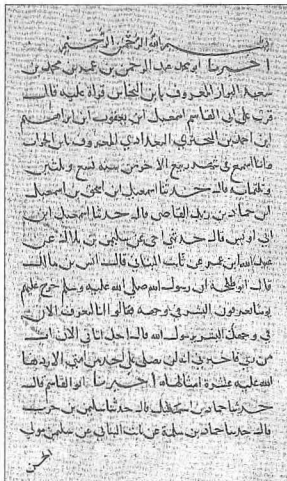 بسم الله الرحمن الرحيم
اخبرنا ابو محمد عبد الرحمن بن عمر بن محمد بن
سعيد البزاز المعروف بابن النحاس قراة عليه قال
قرى على ابي القاسم اسمعيل بن يعقوب بن ابراهيم
ابن احمد بن البختري البغدادي المعروف بابن الجراب
وانا اسمع في شهر ربيع الاخر من سنة تسع وثلثين
وثلثماية قال حدثنا اسمعيل بن اسحق بن اسمعيل
ابن حماد بن زيد القاضي قال حدثنا اسمعيل ابن
ابي اويس قال حدثني اخي عن سليمن بن بلال عن
عبيد الله ابن عمر عن ثابت البناني قال قال انس بن مالك
قال ابو طلحة ان رسول الله صلى الله عليه وسلم خرج عليهم
يوما يعرفون البشر في وجهه فقالوا انا لنعرف الان
في وجهك البشر يرسول الله قال اجل اتاني الان ات
من ربي فاخبرني انه لن يصلي علي احد من امتي الا ردها
الله عليه عشرة امثالها اخبرنا ابو القاسم قال
حدثنا حماد بن اسمعيل قال حدثنا سليمن بن حرب
قال حدثنا حماد بن سلمة عن ثابت البناني عن سليمن مولى
الحسن